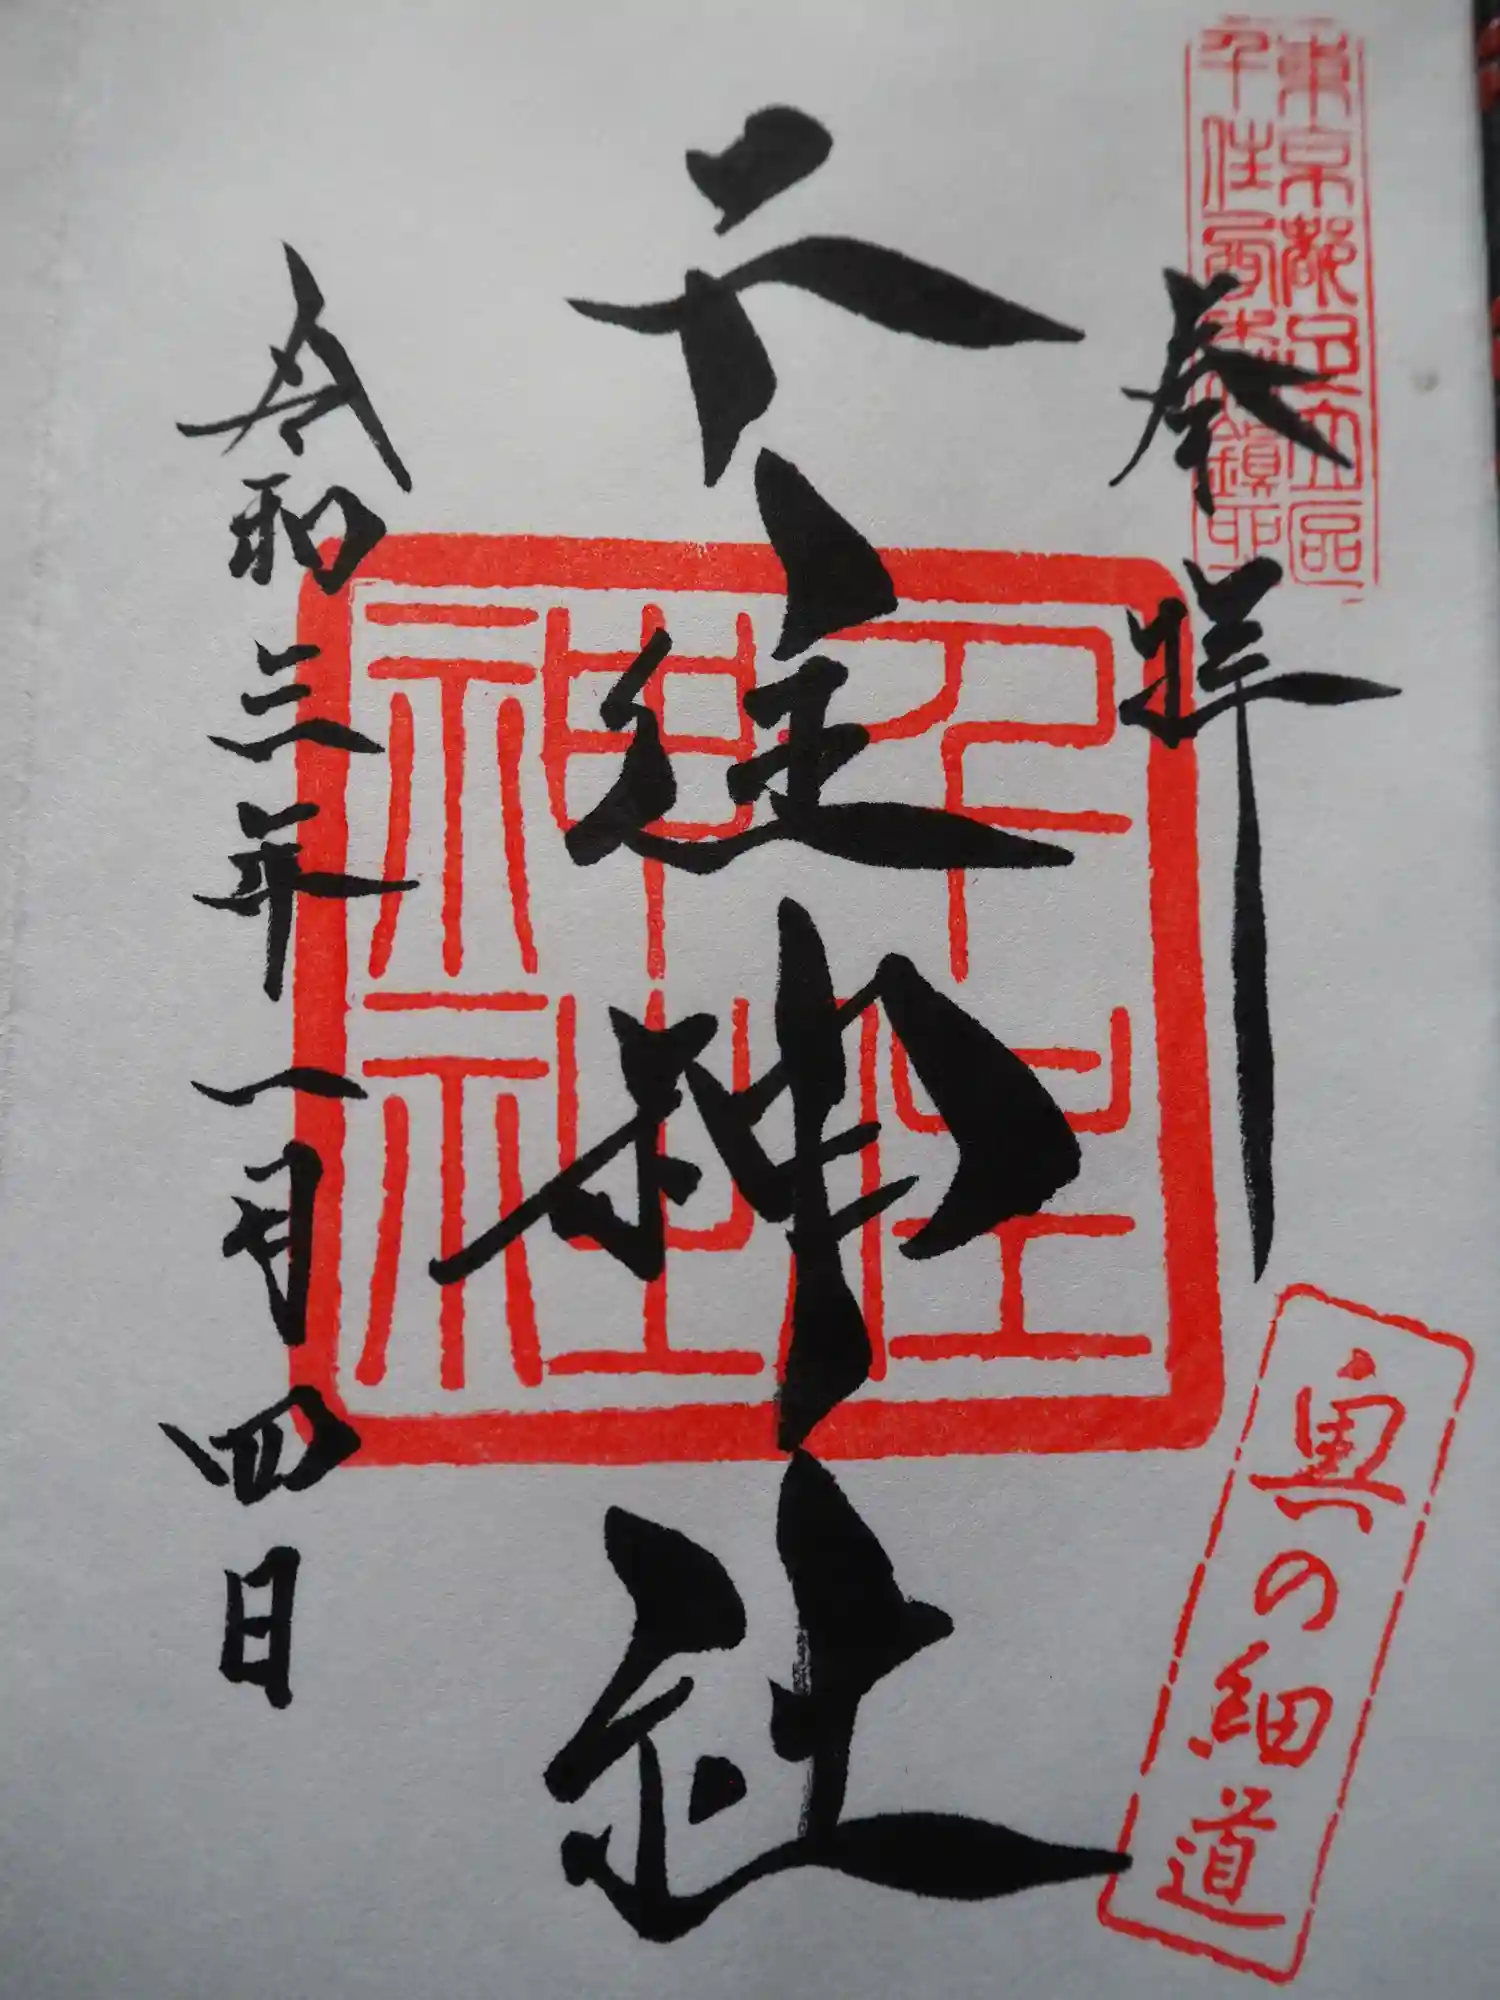 東京都足立区
千住西森下鎮守
奉拝
千住神社
千住
神社
奥の細道
令和三年一月四日